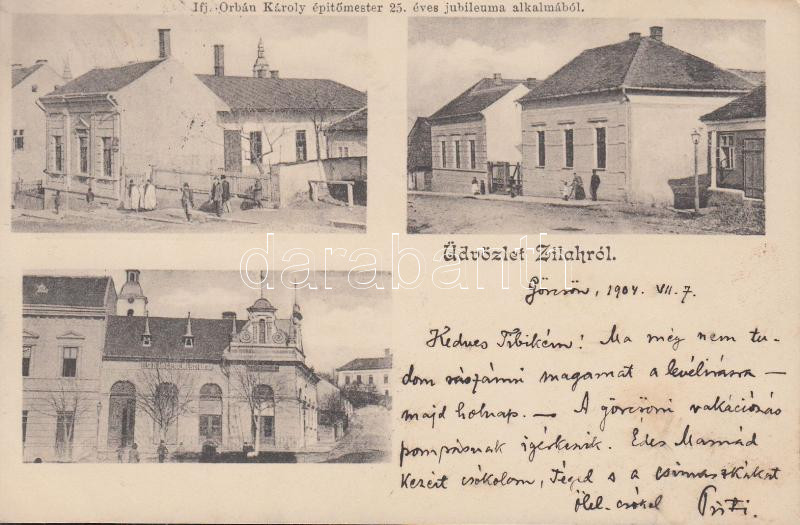 Ifj. Orbán Károly épitőmester 25. éves jubileuma alkalmából.
Üdvözlet Zilahról.
darabanth
Görcsön, 1904. VII. 7.
Kedves Tibikém! Ma még nem tu-
dom rászánni magamat a levélirásra —
majd holnap. — A görcsöni vakációzás
pompásnak igérkezik. Édes Mamád
kezeit csókolom, Téged s a csimaszkákat
ölel-csókol